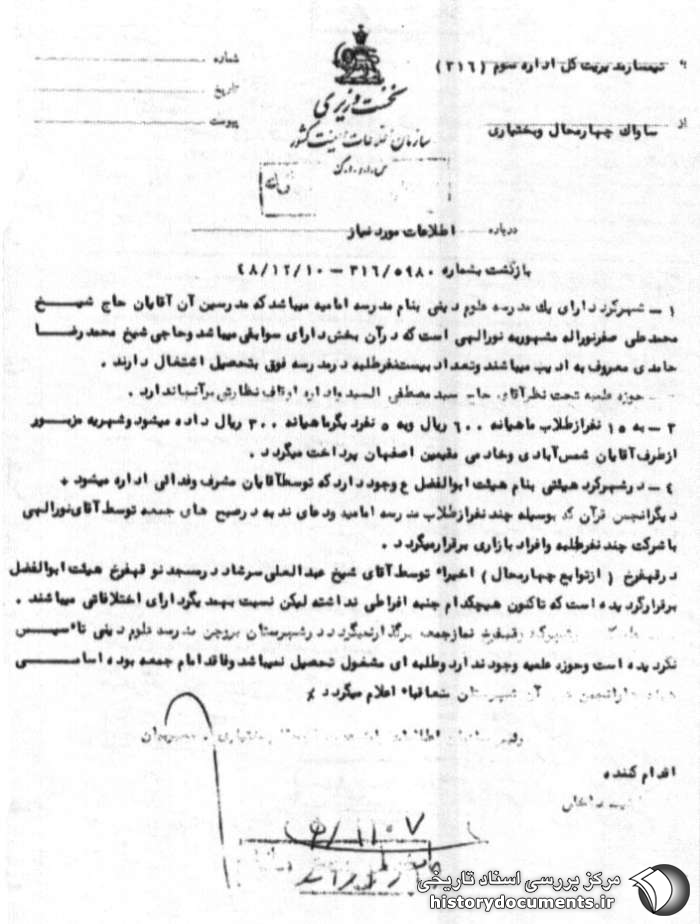 به تیمسار مدیریت کل اداره سوم (۳۱۶)
از ساواک چهارمحال وبختیاری
شماره
تاریخ
پیوست
نخست وزیری
سازمان اطلاعات و امنیت کشور
س.ا.و.ا.ک
درباره اطلاعات مورد نیاز
بازگشت بشماره ۳۱۶/۵۹۸۰ – ۴۸/۱۲/۱۰
۱ – شهرکرد دارای یک مدرسه علوم دینی بنام مدرسه امامیه میباشد که مدرسین آن آقایان حاج شیخ
محمدعلی صفرنوراله مشهوربه نورالهی است که درآن بخش دارای سوابقی میباشد وحاجی شیخ محمدرضا
حامدی معروف به ادیب میباشند وتعداد بیست نفرطلبه درمدرسه فوق بتحصیل اشتغال دارند .
حوزه علمیه تحت نظرآقای حاج سید مصطفی السید واداره اوقاف نظارتی برآنها ندارد .
۳ – به ۱۵ نفرازطلاب ماهیانه ۶۰۰ ریال وبه ۵ نفردیگرماهیانه ۳۰۰ ریال داده میشود وشهریه مزبور
ازطرف آقایان شمس آبادی وخادمی مقیمین اصفهان پرداخت میگردد .
٤ – درشهرکرد هیئتی بنام هیئت ابوالفضل ع وجود دارد که توسط آقایان مشرف وفدائی اداره میشود +
دیگرانجمن قرآن که بوسیله چند نفرازطلاب مدرسه امامیه ودعای ندبه درصبح های جمعه توسط آقای نورالهی
با شرکت چند نفرطلبه وافراد بازاری برقرارمیگردد .
درقهفرخ ( ازتوابع چهارمحال ) اخیراً توسط آقای شیخ عبدالعلی سرشاد درمسجد نو قهفرخ هیئت ابوالفضل
برقرارگردیده است که تاکنون هیچکدام جنبه افراطی نداشته لیکن نسبت بهمدیگردارای اختلافاتی میباشند .
شهرکرد وقهفرخ نمازجمعه برگذارنمیگردد درشهرستان بروجن مدرسه علوم دینی تاسیس
نگردیده است وحوزه علمیه وجود ندارد وطلبه ای مشغول تحصیل نمیباشد وفاقد امام جمعه بوده اسامی
آن شهرستان متعاقباً اعلام میگردد ٪
اقدام کننده
امنیت داخلی
مرکز بررسی اسناد تاریخی
historydocuments.ir